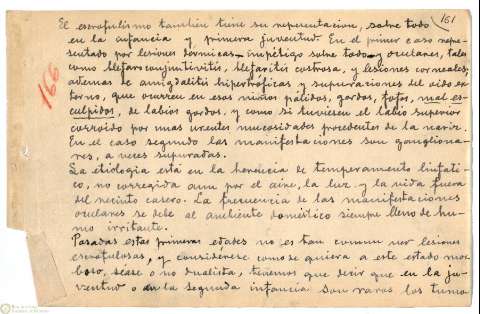 161
166
El escrofulismo también tiene su representación, sobre todo
en la infancia y primera juventud. En el primer caso repre-
sentado por lesiones dérmicas - impétigo sobre todo - y oculares, tales
como blefaroconjuntivitis, blefaritis costrosa, y lesiones corneales,
además de amigdalitis hipertróficas y supuraciones del oido ex-
terno, que ocurren en esos niños pálidos, gordos, fofos, mal es-
culpidos, de labios gordos, y como si tuviesen el labio superior
corroído por unas urentes mucosidades procedentes de la nariz.
En el caso segundo las manifestaciones son gangliona-
res, a veces supuradas.
La etiología está en la herencia de temperamento linfáti-
co, no corregida aun por el aire, la luz y la vida fuera
del recinto casero. La frecuencia de las manifestaciones
oculares se debe al ambiente doméstico siempre lleno de hu-
mo irritante.
Pasadas estas primeras edades no es tan comun ver lesiones
escrofulosas, y considérese como se quiera a este estado mor-
boso, séase o no dualista, tenemos que decir que en la ju-
ventud o en la segunda infancia son raros los tumo